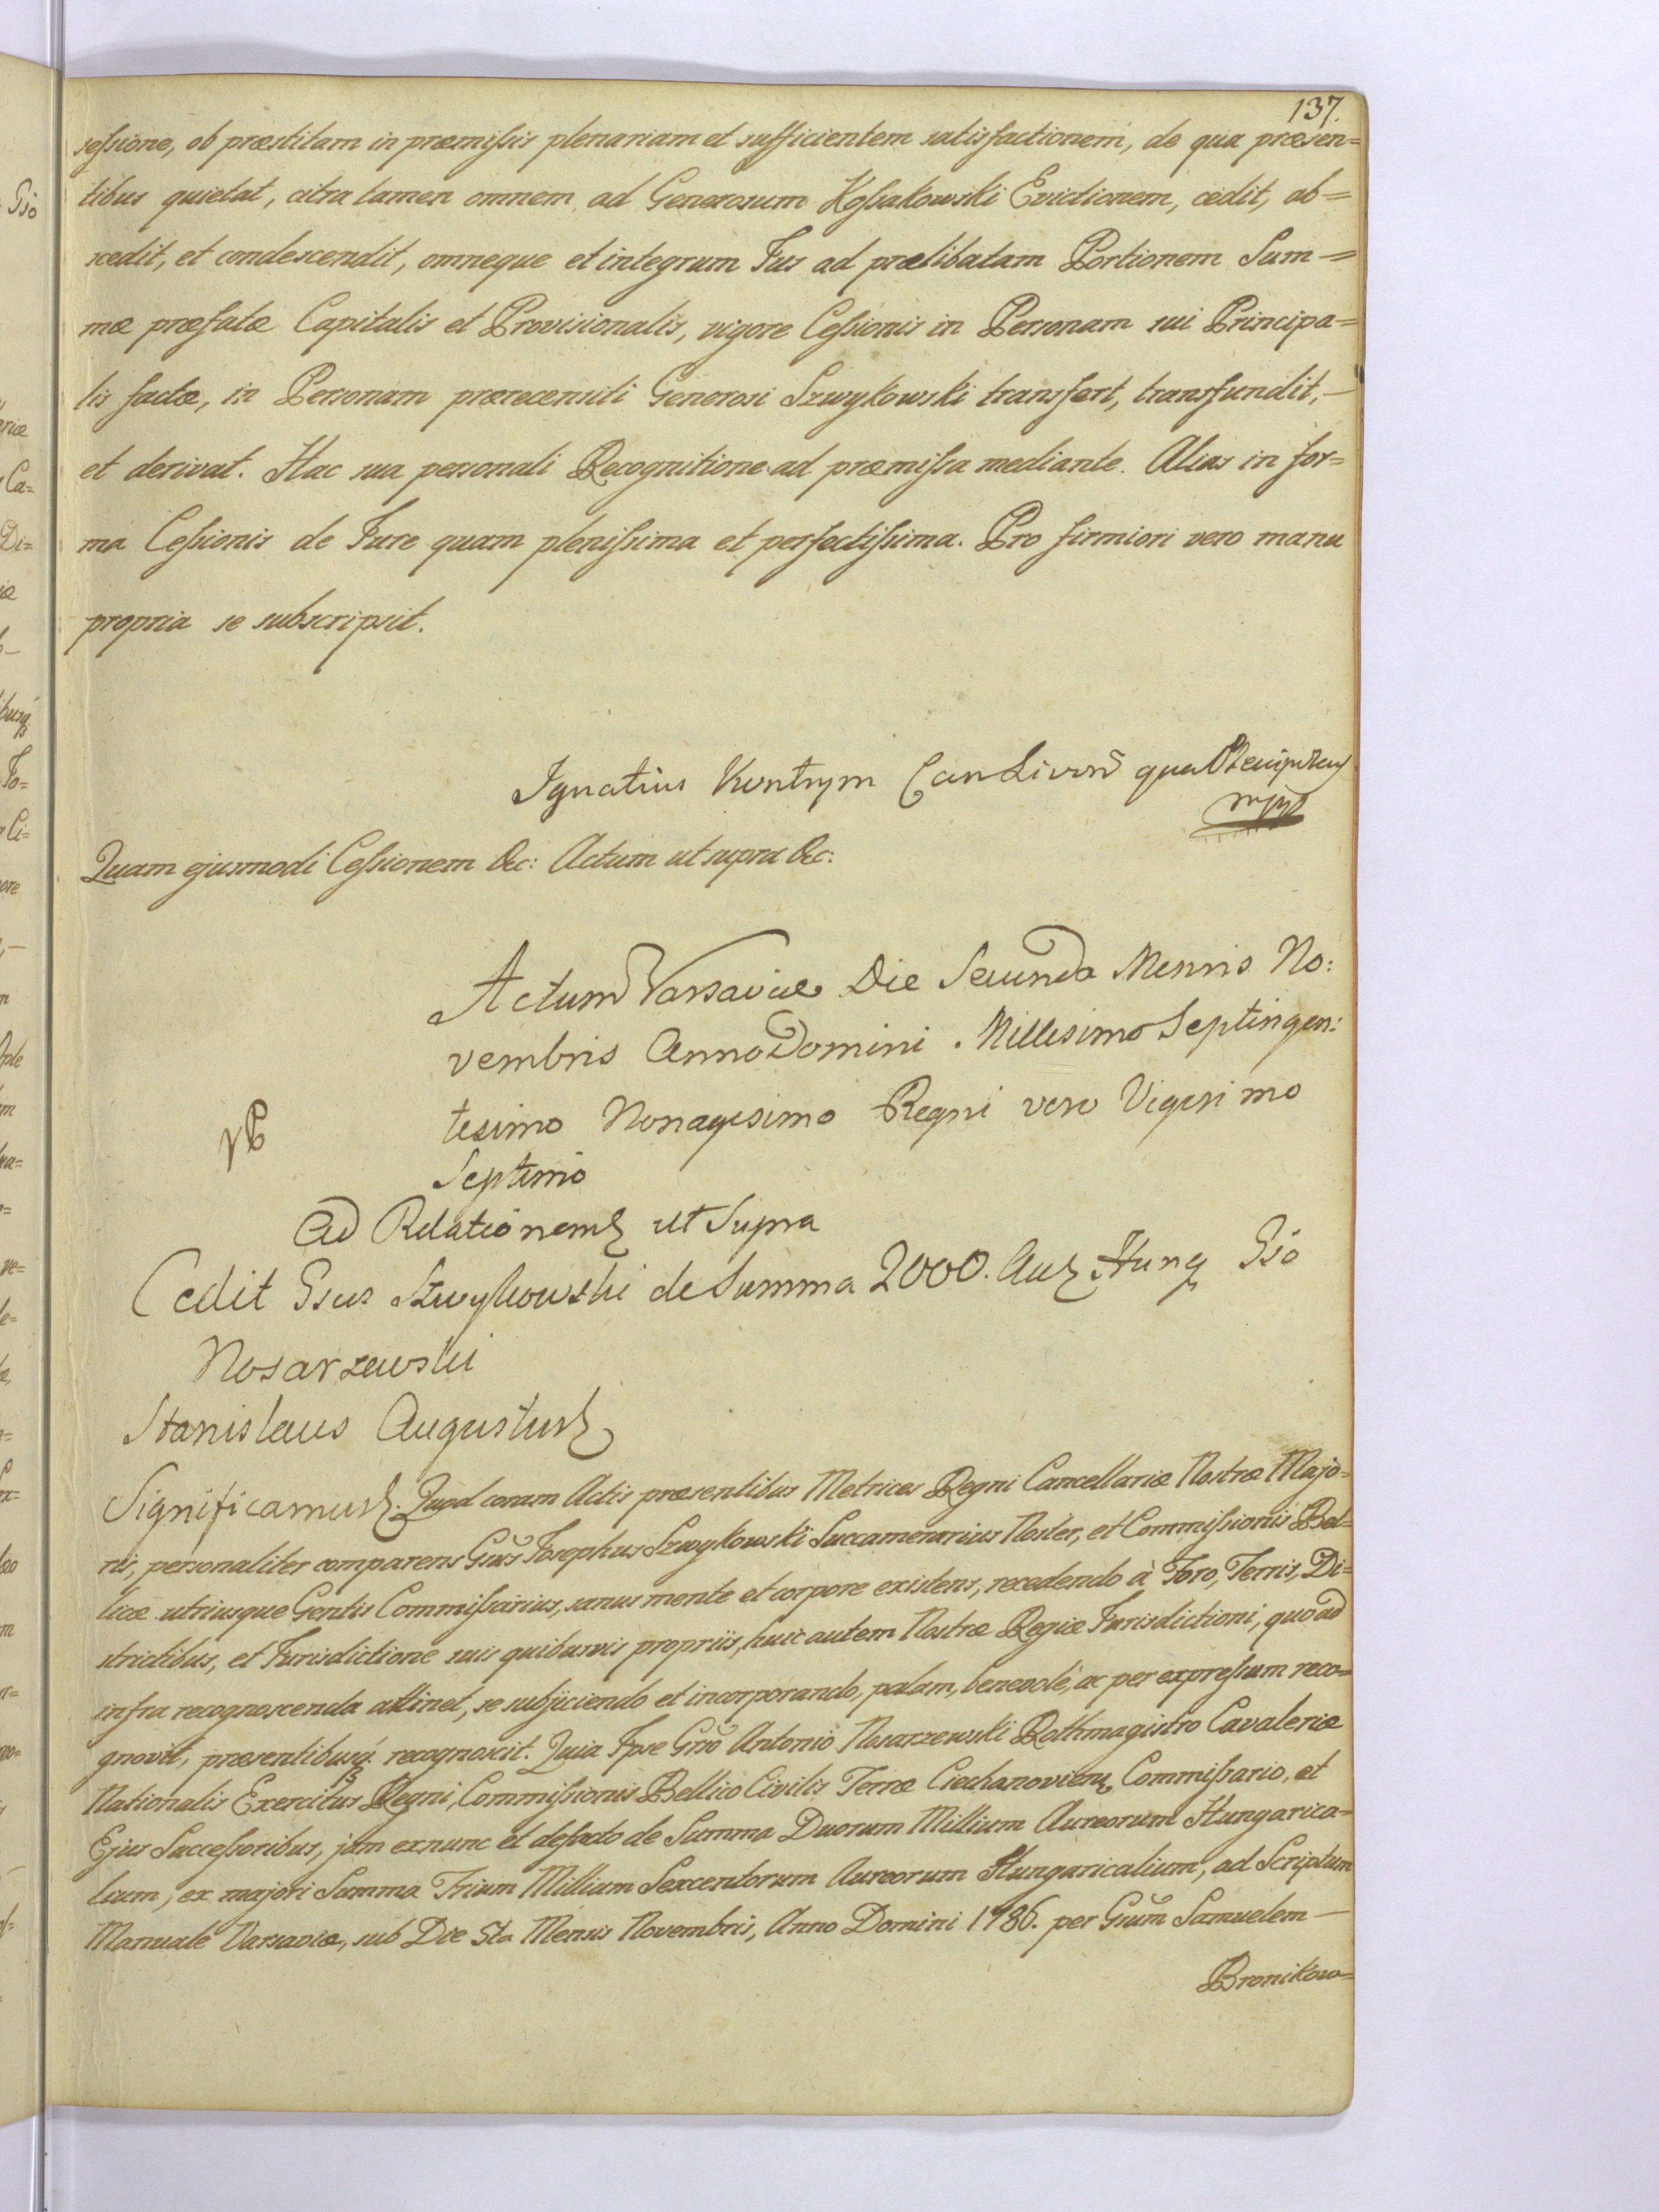 137.
sessione, ob præstitam in præmissis plenariam et sufficientem satisfactionem, de qua præsen=
tibus quietat, citra tamen omnem ad Generosum Kossakowski Evictionem, cedit, ab=
scedit, et condescendit, omneque et integrum Jus ad prælibatam Portionem Sum=
mæ præfatæ Capitalis et Provisionalis, vigore Cessionis in Personam sui Principa=
lis factæ, in Personam prærecensiti Generosi Szwykowski transfert, transfundit,
et derivat. Hac sua personali Recognitione ad præmissa mediante. Alias in for=
ma Cessionis de Jure quam plenissima et perfectissima. Pro firmiori vero manu
propria se subscripsit.
Ignatius Kontrym Can Livon qua
mpp
Quam ejusmodi Cessionem &c: Actum ut supra &c:
Actum Varsaviæ Die Secunda Mensis No:
vembris Anno Domini . Millesimo Septingen:
tesimo Nonagesimo Regni vero Vigesimo
Septimo
Ad Relationem ut Supra
Cedit Gsus Szwykowski de Summa 2000. Aur Hung Gso
Nosarzewski
Stanislaus Augustus
Significamus. Quod coram Actis præsentibus Metrices Regni Cancellariæ Nostræ Majo=
ris, personaliter comparens Gsus Josephus Szwykowski Succamerarius Noster, et Commissionis Bel=
licæ utriusque Gentis Commissarius, sanus mente et corpore existens, recedendo à Foro, Terris, Di=
strictibus, et Jurisdictione suis quibusvis propriis, huic autem Nostræ Regiæ Jurisdictioni, quo ad
infra recognoscenda attinet, se subjiciendo et incorporando, palam, benevolè, ac per expressum reco=
gnovit, præsentibusq. recognoscit. Quia Ipse Gso Antonio Nosarzewski Rothmagistro Cavaleriæ
Nationalis Exercitus Regni, Commissionis Bellico Civilis Terræ Ciechanovien, Commissario, et
Ejus Successoribus, jam exnunc et defacto de Summa Duorum Millium Aureorum Hungarica=
lium, ex majori Summa Trium Millium Sexcentorum Aureorum Hungaricalium, ad Scriptum
Manuale Varsaviæ, sub Die 5ta Mensis Novembris, Anno Domini 1786. per Gsum Samuelem
Bronikow=